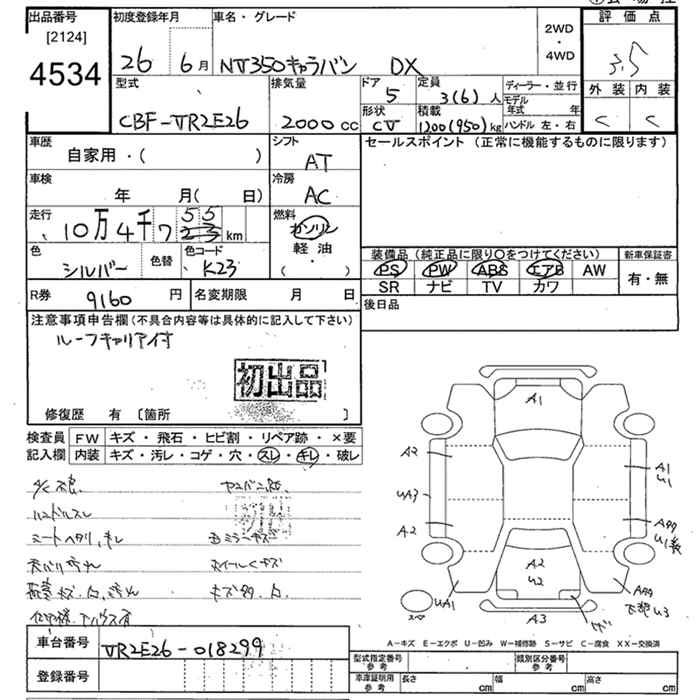 出品番号 初度登録年月 車名・グレード 評価点
[2124]
4534
26 6月 NV350キャラバン DX
2WD
・
4WD
3.5
型式 排気量 ドア 定員 ディーラー・並行 外装 内装
CBF-VR2E26 2000cc 5 3(6)人
形状 積載 モデル年式 年
CV 1200(950)kg ハンドル 左・右 C C
車歴 シフト セールスポイント (正常に機能するものに限ります)
自家用・( ) AT
車検 冷房
年 月( 日) AC
走行 燃料
10万4千7 23 km ガソリン
55
軽油
( ・ )
色 色替 色コード
シルバー K23
装備品 (純正品に限り○をつけてください) 新車保証書
PS PW ABS エアB AW 有・無
SR ナビ TV カワ
R券 9160円 名変期限 月 日 後日品
注意事項申告欄 (不具合内容等は具体的に記入して下さい)
ルーフキャリア付
初出品
修復歴 有 〔箇所 〕
検査員 FW キズ・飛石・ヒビ割・リペア跡・×要
記入欄 内装 キズ・汚レ・コゲ・穴・スレ・キレ・破レ
ハンドルスレ
初出品
シートヘタリ、キレ ミラーキズ
ホイールキズ
A1
A2
UA3
A2
UA1
A1
U1
A2
U2
A3
下部U3
A-キズ E-エクボ U-凹み W-補修跡 S-サビ C-腐食 XX-交換済
車台番号 VR2E26-018299
登録番号
型式指定番号 参考 類別区分番号 参考
車庫証明用 参考 長さ cm 幅 cm 高さ cm